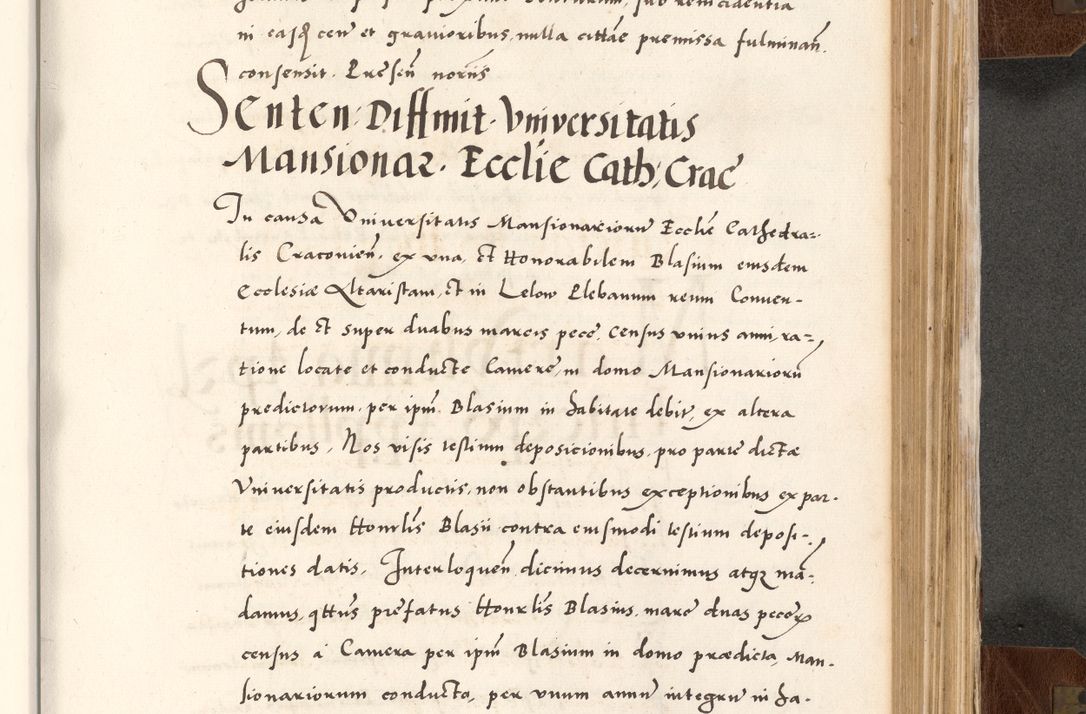 in easdem cen et gravioribus, nulla cittae premissa fulminan.
consensit. Presen norīīs
Senten: Diffinit. Vniversitatis
Mansionar. Ecclīe Cath: Crac
In causa Vniuersitatis Mansionariorū Ecclīe Cathedra-
lis Cracouień. ex vna, et Honorabilem Blasium eiusdem
Ecclesiæ Altaristam, et in Lelow Plebanum reum Conuen-
tum, de et super duabus marcis pece. census vnius anni, ra-
tione locate et conducte Camere, in domo Mansionariorū
predictorum, per ipm̄ Blasium in habitate debit, ex altera
partibus, Nos visis testium deposicionibus, pro parte dictæ
Vniuersitatis productis, non obstantibus exceptionibus ex par-
te eiusdem Honrlīs Blasii contra eiusmodi testium deposi-
tiones datis, Interloqueń dicimus decernimus atqȝ mā-
damus, qttus prefatus Honrlīs Blasius, marc duas pece
census à Camera per ipm̄ Blasium in domo prædicta, Man-
sionariorum conducta, per vnum annū integrū in ha-